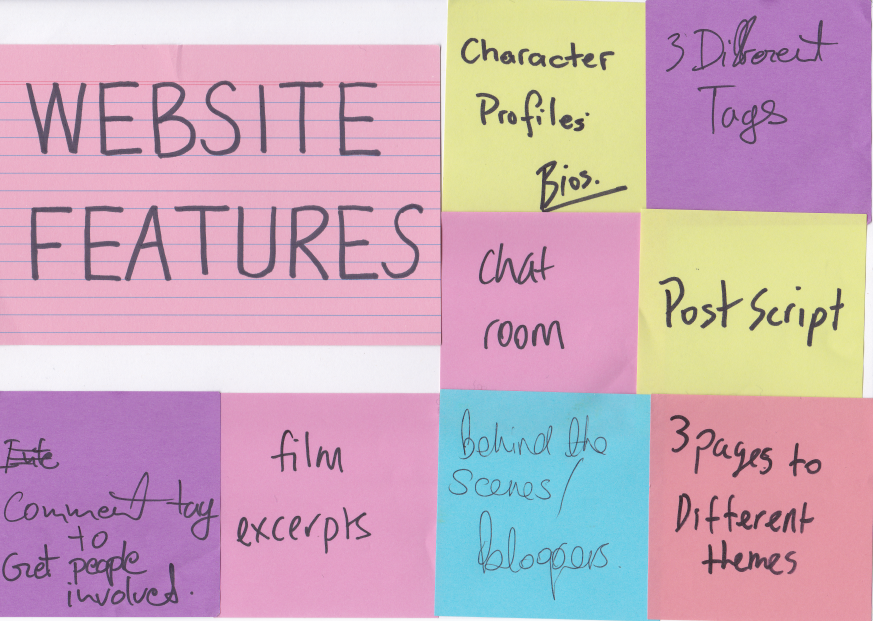 WEBSITE
FEATURES
Character
Profiles
Bios.
3 Different
Tags
Chat
room
Post Script
Comment tag
to
Get people
involved.
film
excerpts
Behind the
Scenes/
bloggers.
3 pages to
Different
themes